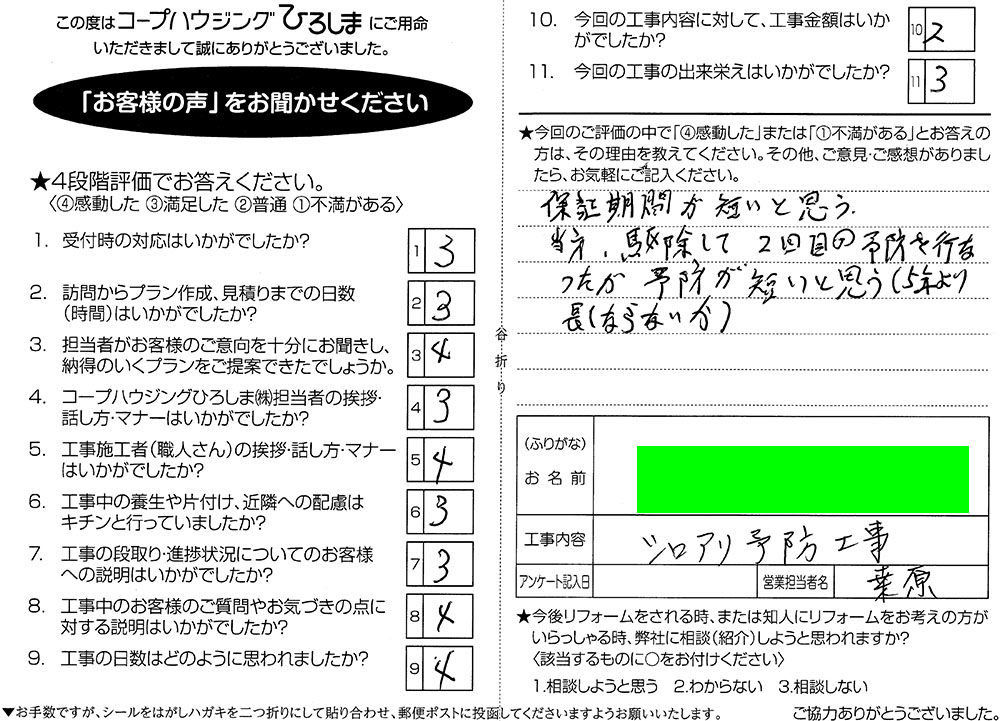 この度はコープハウジングひろしまにご用命
いただきまして誠にありがとうございました。
「お客様の声」をお聞かせください
★4段階評価でお答えください。
〈④感動した ③満足した ②普通 ①不満がある〉
1. 受付時の対応はいかがでしたか?
1 3
2. 訪問からプラン作成、見積りまでの日数
(時間)はいかがでしたか?
2 3
3. 担当者がお客様のご意向を十分にお聞きし、
納得のいくプランをご提案できたでしょうか。
3 4
4. コープハウジングひろしま㈱担当者の挨拶・
話し方・マナーはいかがでしたか?
4 3
5. 工事施工者(職人さん)の挨拶・話し方・マナー
はいかがでしたか?
5 4
6. 工事中の養生や片付け、近隣への配慮は
キチンと行っていましたか?
6 3
7. 工事の段取り・進捗状況についてのお客様
への説明はいかがでしたか?
7 3
8. 工事中のお客様のご質問やお気づきの点に
対する説明はいかがでしたか?
8 4
9. 工事の日数はどのように思われましたか?
9 4
▼お手数ですが、シールをはがしハガキを二つ折りにして貼り合わせ、郵便ポストに投函してくださいますようお願いいたします。
谷折り
10. 今回の工事内容に対して、工事金額はいか
がでしたか?
10 2
11. 今回の工事の出来栄えはいかがでしたか?
11 3
★今回のご評価の中で「④感動した」または「①不満がある」とお答えの
方は、その理由を教えてください。その他、ご意見・ご感想がありまし
たら、お気軽にご記入ください。
保証期間が短いと思う.
当方、駆除して2回目の予防を行な
ったが予防が短いと思う(5年より
長くならないか)
(ふりがな)
お名前
工事内容 シロアリ予防工事
アンケート記入日 営業担当者名 葉原
★今後リフォームをされる時、または知人にリフォームをお考えの方が
いらっしゃる時、弊社に相談(紹介)しようと思われますか?
〈該当するものに○をお付けください〉
1.相談しようと思う 2.わからない 3.相談しない
ご協力ありがとうございました。